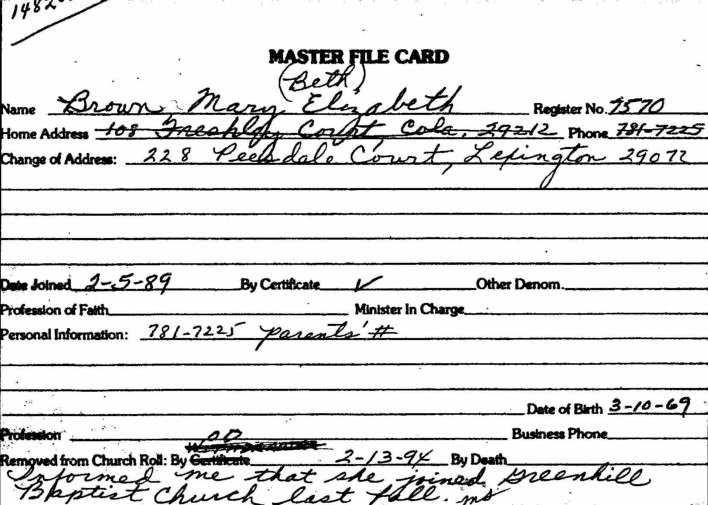 1482
MASTER FILE CARD
(Beth)
Name Brown, Mary Elizabeth Register No. 7570
Home Address 108 Court, Cola. 29212 Phone 781-7225
Change of Address: 228 Court, Lexington 29072
Date Joined 2-5-89 By Certificate ✓ Other Denom.
Profession of Faith Minister In Charge
Personal Information: 781-7225 parents' #
Date of Birth 3-10-69
Profession Business Phone
Removed from Church Roll: By Certificate 2-13-94 By Death
Informed me that she joined Greenhill
Baptist Church last fall. ms